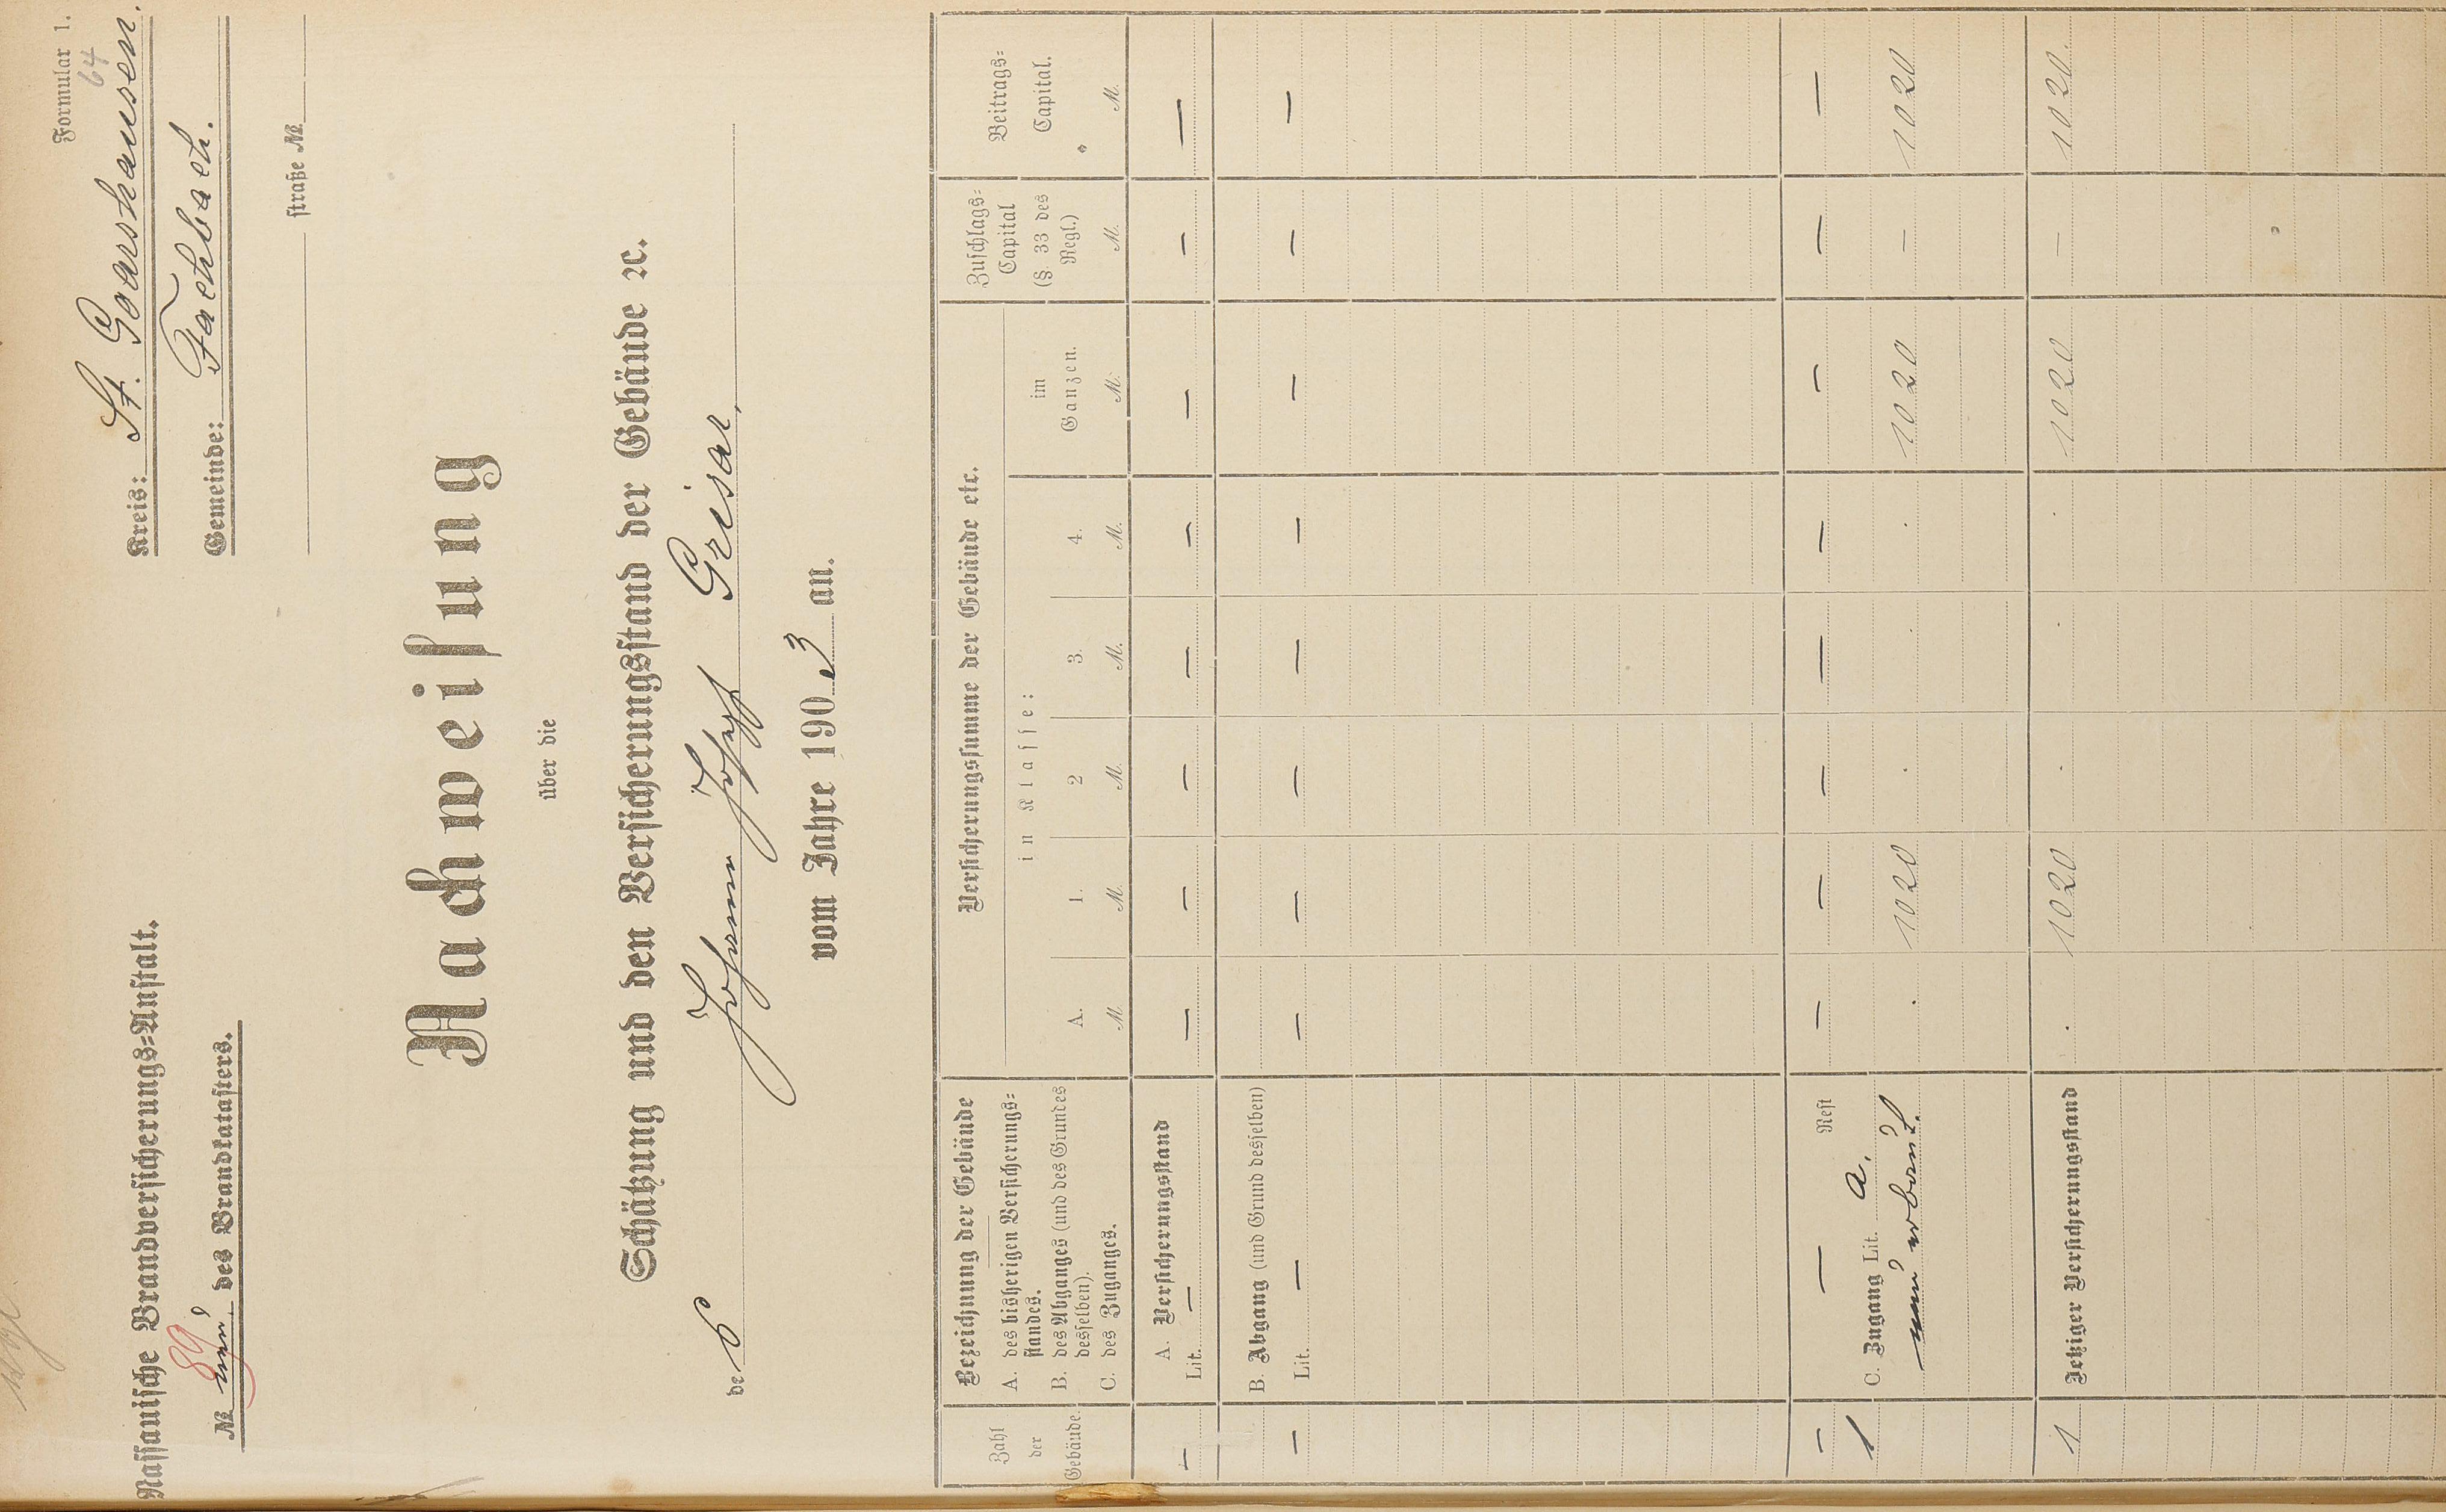 Formular 1.
64
Nassauische Brandversicherungs=Anstalt.
Kreis: St. Goarshausen.
89
№ neu. des Brandkatasters.
Gemeinde: Fachbach.
straße №
Nachweisung
über die
Schätzung und den Versicherungsstand der Gebäude ꝛc.
des Johann Joseph Grisar,
vom Jahre 1903 an.
Zahl der Gebäude.
Bezeichnung der Gebäude
A. des bisherigen Versicherungs=
standes.
B. des Abganges (und des Grundes
desselben).
C. des Zuganges.
Versicherungssumme der Gebäude etc.
in Klasse:
A. 1. 2 3. 4.
im Ganzen.
Zuschlags=
Capital
(§. 33 des
Regl.)
Beitrags=
Capital.
M. M. M. M. M. M. M. M.
A. Versicherungsstand
— Lit. — — — — — — — — —
B. Abgang (und Grund desselben)
— Lit. — — — — — — — — —
— — Rest — — — — — — — —
1 C. Zugang Lit. a.
neu erbaut. . 1020 . . . 1020 — 1020
1 Jetziger Versicherungsstand . 1020 . . . 1020 — 1020.